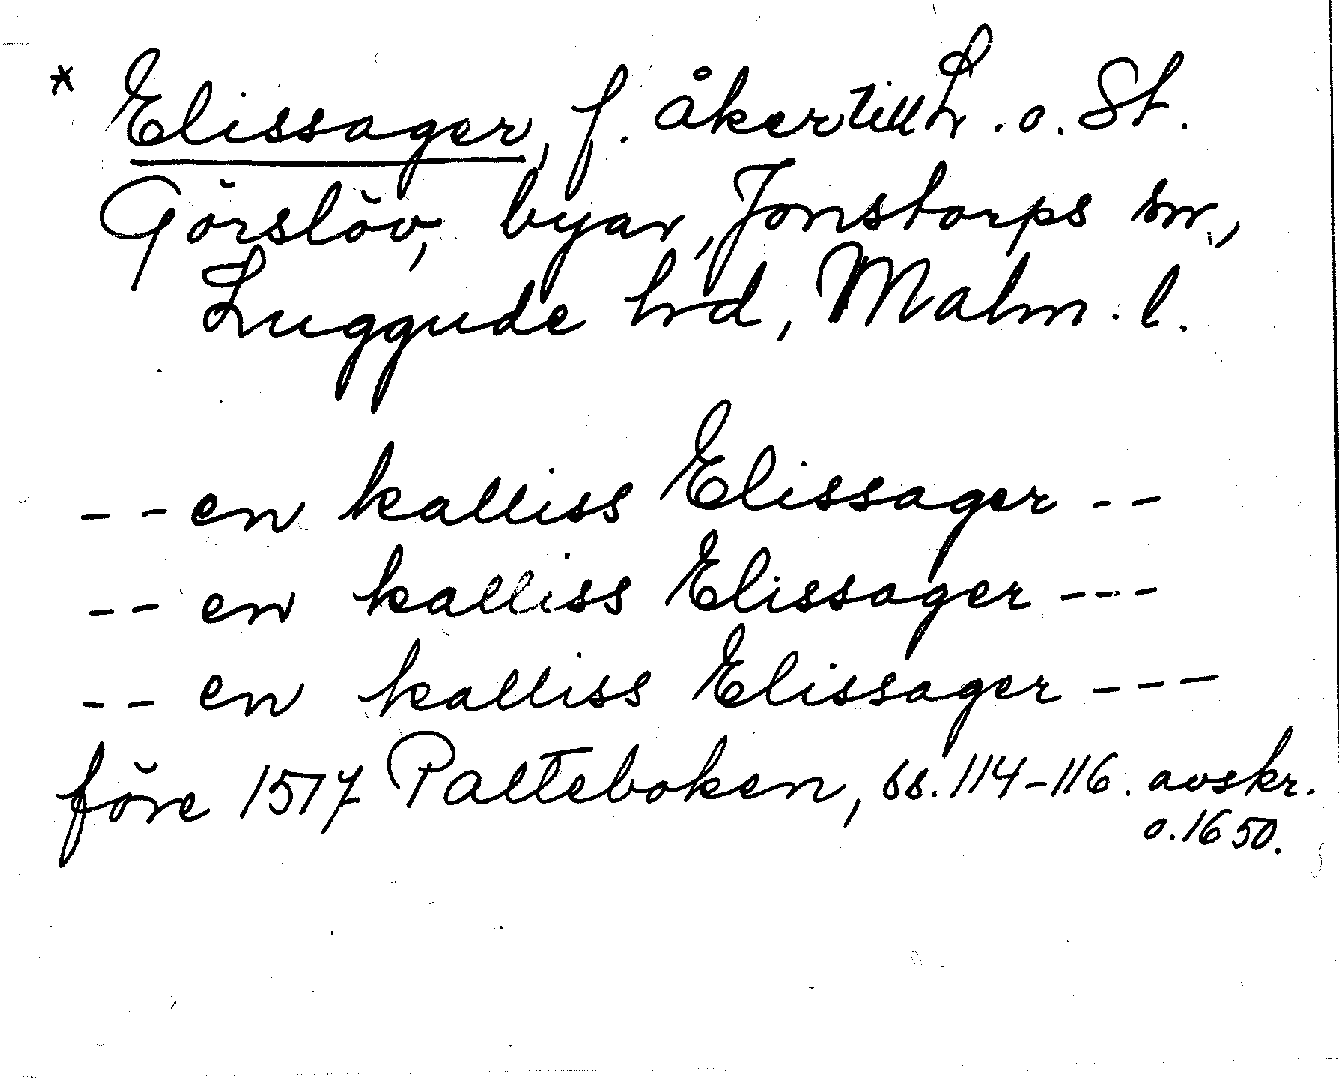 * Elissager, f. åker till L. o. St.
Görslöv, byar, Jonstorps sn.,
Luggude hd, Malm. l.
-- en kalliss Elissager --
-- en kalliss Elissager ---
-- en kalliss Elissager ---
före 1517 Palteboken, ss. 114-116. avskr.
o. 1650.